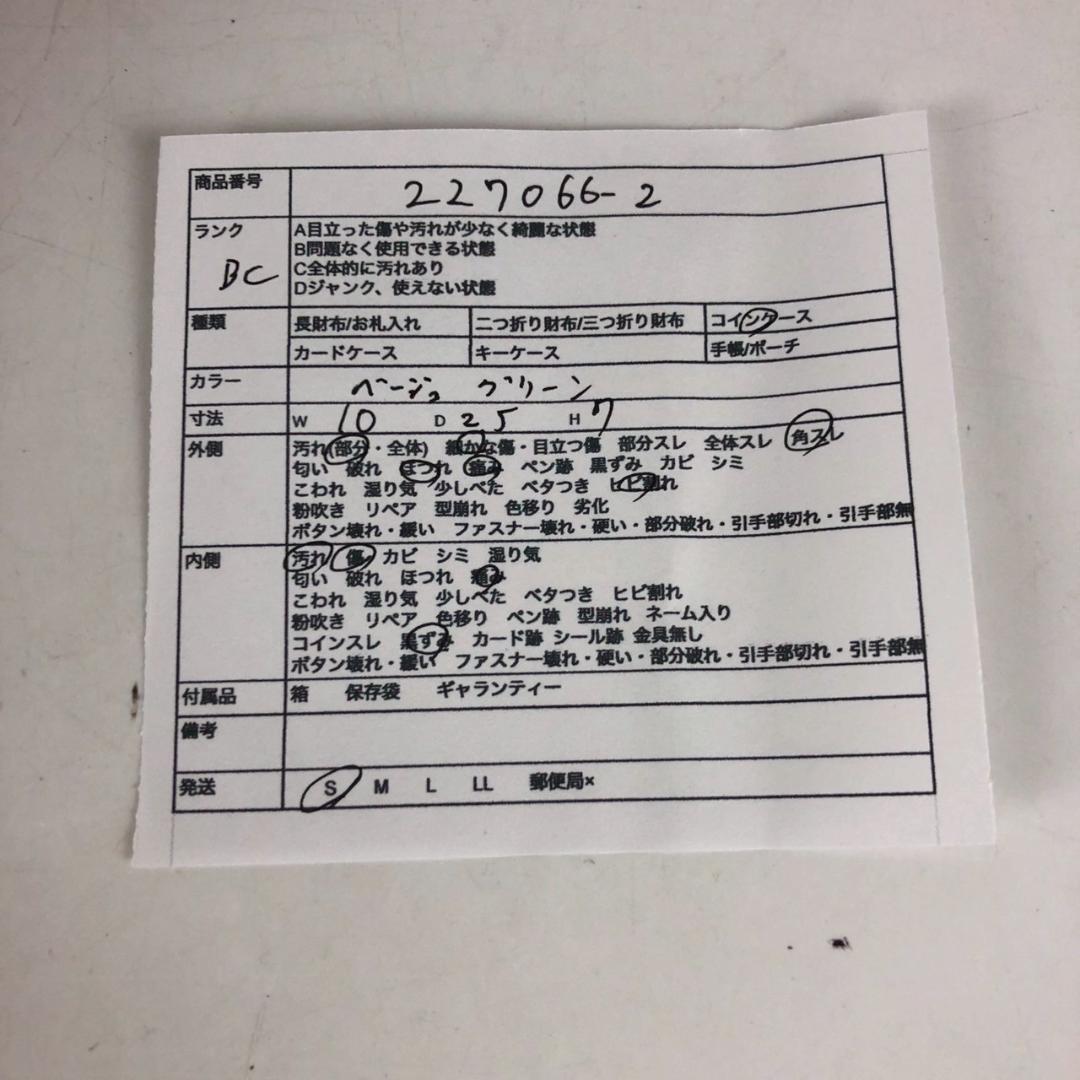 商品番号 227066-2
ランク BC
A目立った傷や汚れが少なく綺麗な状態
B問題なく使用できる状態
C全体的に汚れあり
Dジャンク、使えない状態
種類 長財布/お札入れ 二つ折り財布/三つ折り財布 コインケース
カードケース キーケース 手帳/ポーチ
カラー ベージュ グリーン
寸法 W 10 D 2 5 H 7
外側 汚れ(部分・全体) 細かな傷・目立つ傷 部分スレ 全体スレ 角スレ
匂い 破れ ほつれ 痛み ペン跡 黒ずみ カビ シミ
こわれ 湿り気 少しべた ベタつき ヒビ割れ
粉吹き リペア 型崩れ 色移り 劣化
ボタン壊れ・緩い ファスナー壊れ・硬い・部分破れ・引手部切れ・引手部無
内側 汚れ 傷 カビ シミ 湿り気
匂い 破れ ほつれ 痛み
こわれ 湿り気 少しべた ベタつき ヒビ割れ
粉吹き リペア 色移り ペン跡 型崩れ ネーム入り
コインスレ 黒ずみ カード跡 シール跡 金具無し
ボタン壊れ・緩い ファスナー壊れ・硬い・部分破れ・引手部切れ・引手部無
付属品 箱 保存袋 ギャランティー
備考
発送 S M L LL 郵便局×